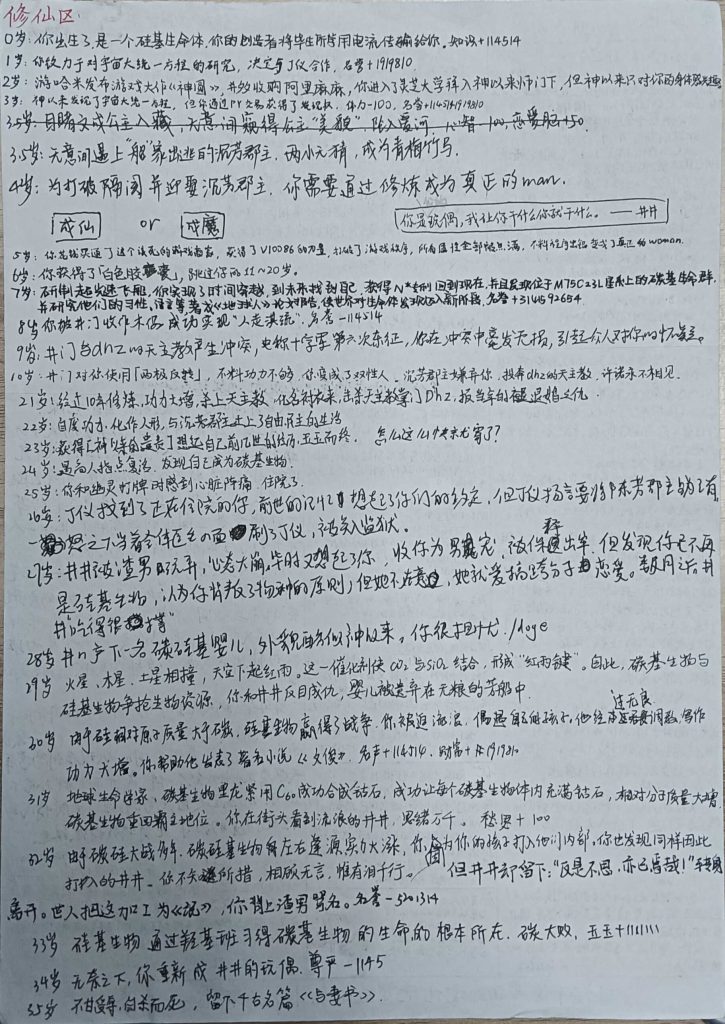 修仙区
0岁:你出生了,是一个硅基生命体,你的创造者将毕生所学用电流传输给你。知识+114514
1岁:你致力于对宇宙大统一方程的研究,决定与丁仪合作,名誉+1919810
2岁:游哈米发布游戏大作《神图》,并收购阿里麻麻,你进入了灵芝大学拜入神以来师门下,但神以来只对你的身体感兴趣
3岁:神以来发现了宇宙大统一方程,但你通过PY交易获得了发现权,体力-100,名誉+1145141919810
3.5岁:目睹文成公主入藏,无意间窥得公主“美貌”坠入爱河,心智-100,恋爱脑+50.
3.5岁:无意间遇上“船”家出逃的沉芳郡主,两小无猜,成为青梅竹马.
4岁:为打破隔阂并迎娶沉芳郡主,你需要通过修炼成为真正的man.
成仙 or 成魔
你是玩偶,我让你干什么你就干什么。——井井
5岁:你花钱买通了这个该死的游戏,获得了V10086的力量,打破了游戏秩序,所有属性全部点满,不料程序出错变成了真正的woman.
6岁:你获得了“白色胶囊”,跳过你的11~20岁。
7岁:研制超光速飞船,你实现了时间穿越,到未来找到自己,获得N*专利回到现在,并且发现位于M75C23L星系上的碳基生命群,
并研究他们的习性,注《地球人》论文报告,使世界对生命体发现迈入新阶段,名誉+314592654
8岁:你被井门收作木偶,成功实现“人走湛流”,名誉-114514
9岁:井门与dhz的天主教产生冲突,史称十字军第六次东征,你在冲突中毫发无损,引起众人对你的怀疑.
10岁:井门对你使用「两极反转」,不料功力不够,你变成了双性人。沉芳郡主嫌弃你,投奔dhz的天主教,许诺永不相见.
21岁:经过10年修炼,功力大增,杀上天主教,化名衬衣来,击杀天主教掌门Dhz,报当年的退婚之仇.
22岁:自废功力,化作人形,与沉芳郡主过上了自由民主的生活
23岁:获得[神以来的尊贵]想起自己前几世的经历,玉玉而终. 怎么这么快末尤寄了?
24岁:遇高人指点复活,发现自己成为碳基生物.
25岁:你和幽灵打牌时感到心脏阵痛,住院了.
26岁:丁仪找到了正在住院的你,前世的记忆想起了你们的约定,但丁仪扬言要将东芳郡主占为己有,
一怒之下当着全体医生の面刷了丁仪,被关入监狱.
27岁:井井被渣男玩弄,心态大崩,毕时又想起了你,收你为男宠,被保释出牢,但发现你已不再
是硅基生物,认为你背叛了物种的原则;但她不在意,她就爱搞跨分子恋爱。数月之后井
井“吃得很撑”
28岁 井n产下一名碳硅基婴儿,外貌酷似神以来。你很担忧./doge
29岁 火星、木星、土星相撞,天空下起红雨。这一催化剂使CO₂与SiO₂结合,形成“红雨键”。自此,碳基生物与
硅基生物争抢生物资源,你和井井反目成仇,婴儿被遗弃在无粮的苦船中.
30岁 由于硅相对原子质量大于碳,硅基生物赢得了战争,你被迫流浪,偶遇自己的孩子,他经过无良调教,写作
动力大增。你帮助他发表了著名小说《文俊》. 名声+114514.财富+1919810
31岁 地球生命学家、碳基生物里龙絮用C₆₀成功合成钻石,成功让每个碳基生物体内充满钻石,相对分子质量大增
碳基生物重回霸主地位。你在街头看到流浪的井井,思绪万千。愁思+100
32岁 由于碳硅大战多年,碳硅基生物每左右逢源实力大涨,你因为你的孩子打入他们内部,你也发现同样因此
打入的井井。你不知所措,相顾无言,惟有泪千行。但井井却留下:“反是不思,亦已焉哉!”转身
离开。世人把这加工为《氓》,你背上渣男骂名。名誉-5201314
33岁 硅基生物通过羟基班习得碳基生物的生命的根本所在.碳大败,玉玉+1111111
34岁 无奈之下,你重新成井井的玩偶.尊严-1145
35岁 不甘受辱,自杀而死,留下千古名篇《与妻书》.